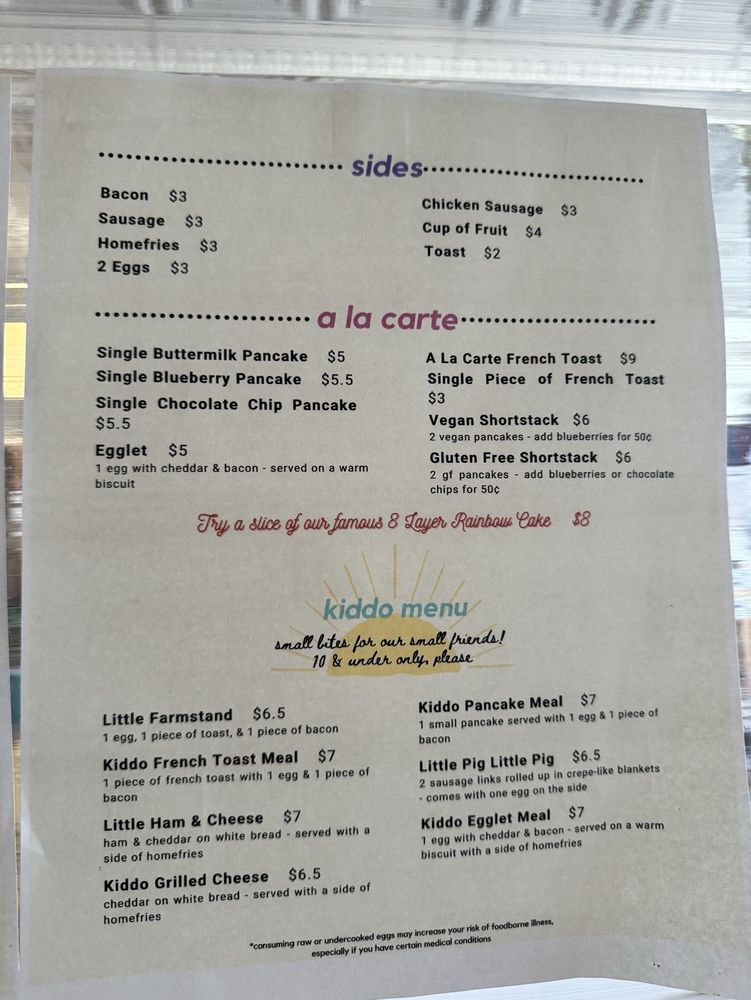 sides
Bacon $3
Sausage $3
Homefries $3
2 Eggs $3
Chicken Sausage $3
Cup of Fruit $4
Toast $2
a la carte
Single Buttermilk Pancake $5
Single Blueberry Pancake $5.5
Single Chocolate Chip Pancake
$5.5
Egglet $5
1 egg with cheddar & bacon - served on a warm
biscuit
A La Carte French Toast $9
Single Piece of French Toast
$3
Vegan Shortstack $6
2 vegan pancakes - add blueberries for 50¢
Gluten Free Shortstack $6
2 gf pancakes - add blueberries or chocolate
chips for 50¢
Try a slice of our famous 8 Layer Rainbow Cake $8
kiddo menu
small bites for our small friends!
10 & under only, please
Little Farmstand $6.5
1 egg, 1 piece of toast, & 1 piece of bacon
Kiddo French Toast Meal $7
1 piece of french toast with 1 egg & 1 piece of
bacon
Little Ham & Cheese $7
ham & cheddar on white bread - served with a
side of homefries
Kiddo Grilled Cheese $6.5
cheddar on white bread - served with a side of
homefries
Kiddo Pancake Meal $7
1 small pancake served with 1 egg & 1 piece of
bacon
Little Pig Little Pig $6.5
2 sausage links rolled up in crepe-like blankets
- comes with one egg on the side
Kiddo Egglet Meal $7
1 egg with cheddar & bacon - served on a warm
biscuit with a side of homefries
*consuming raw or undercooked eggs may increase your risk of foodborne illness,
especially if you have certain medical conditions